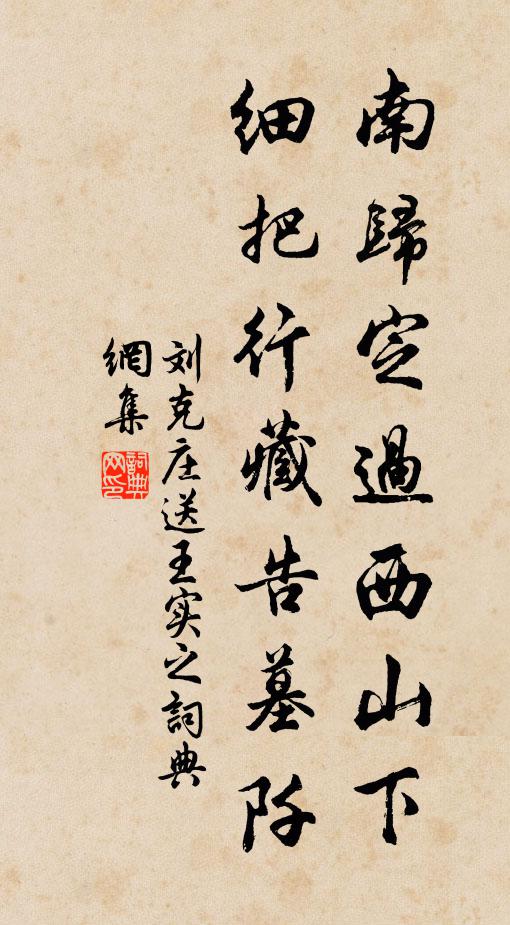 南歸定過西山下
細把行藏告墓阡
刘克庄送王实之詞典
網集
詞典
网印